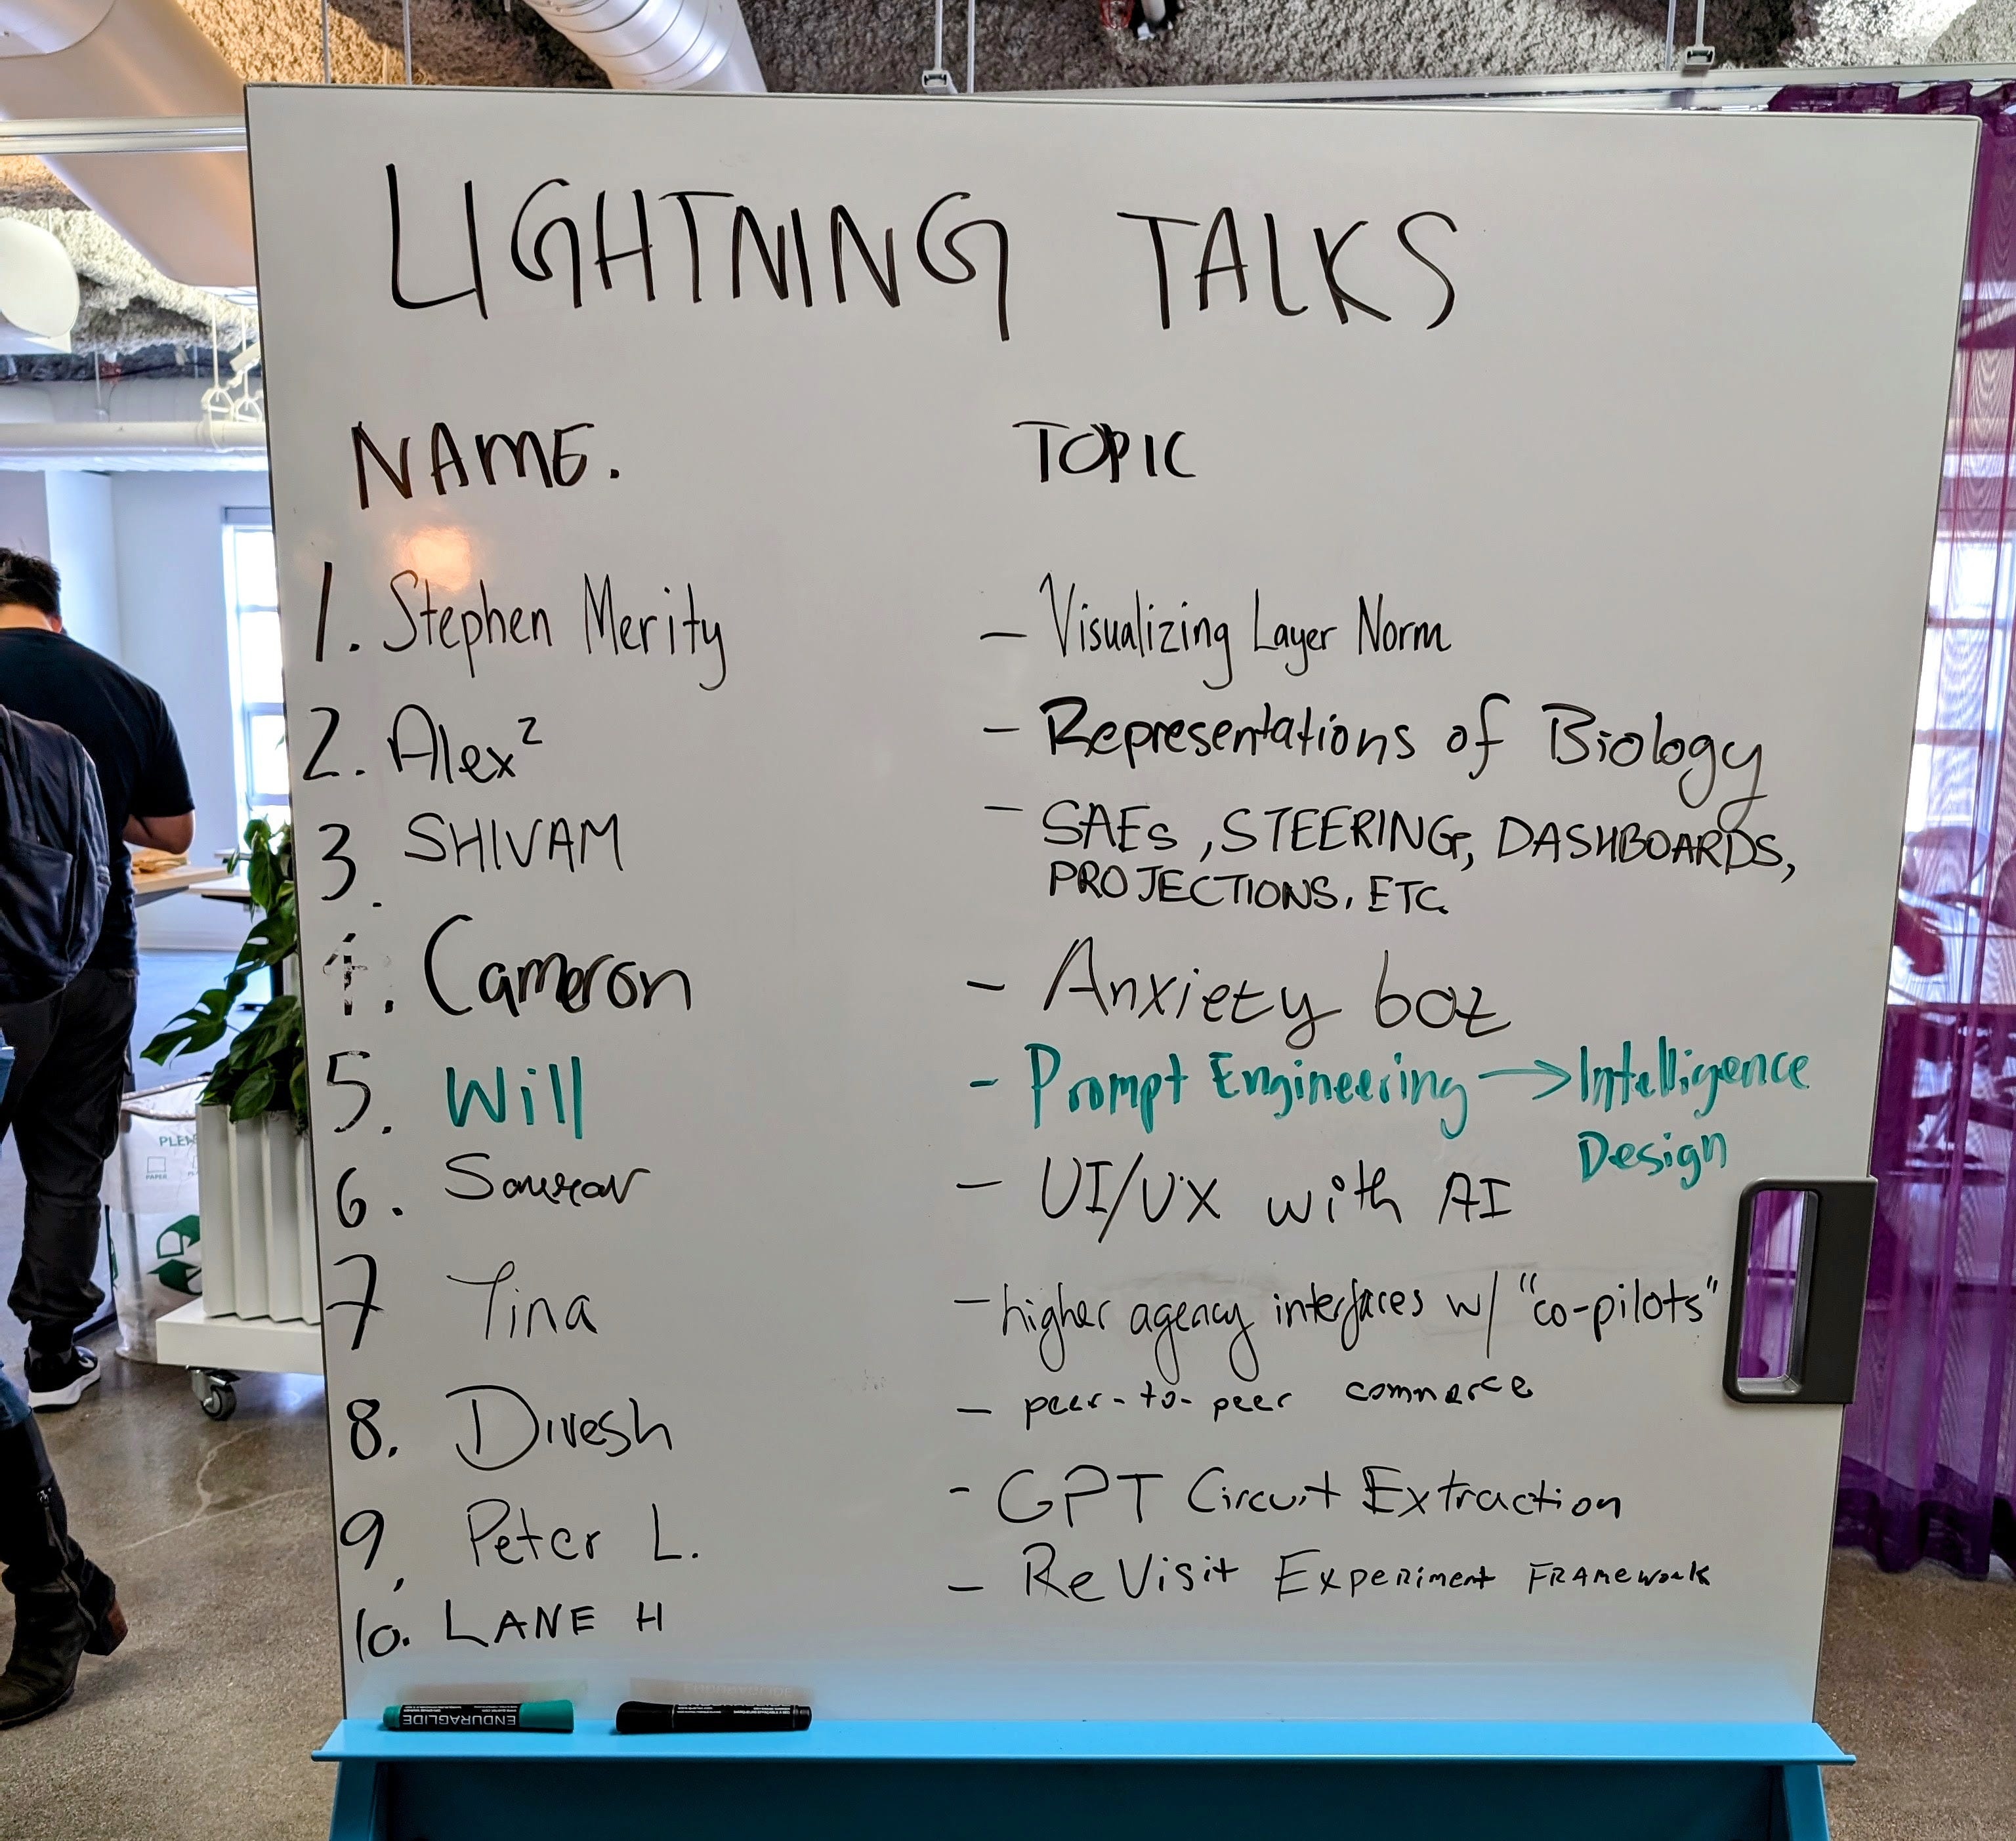 LIGHTNING TALKS
NAME. TOPIC
1. Stephen Merity - Visualizing Layer Norm
2. Alex² - Representations of Biology
3. SHIVAM - SAEs, STEERING, DASHBOARDS,
PROJECTIONS, ETC.
4. Cameron - Anxiety boz
5. Will - Prompt Engineering → Intelligence
Design
6. Saurav - UI/UX with AI
7 Tina - higher agency interfaces w/ "co-pilots"
8. Divesh - peer-to-peer commerce
9. Peter L. - GPT Circuit Extraction
10. LANE H - ReVisit Experiment Framework
PAPER
ENDURAGLIDE